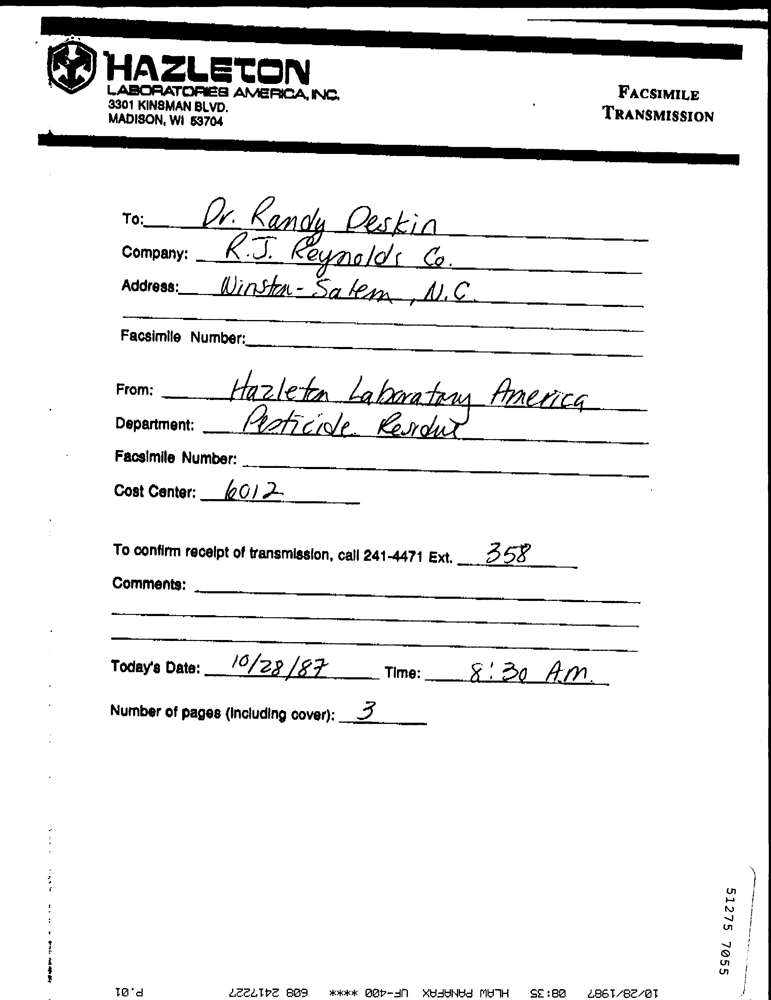 HAZLETON
LABORATORIES AMERICA, INC.
3301 KINSMAN BLVD.
MADISON, WI 53704
FACSIMILE
TRANSMISSION
To: Dr. Randy Deskin
Company: R.J. Reynolds Co.
Address: Winston-Salem, N.C.
Facsimile Number:
From: Hazleton Laboratory America
Department: Pesticide Residue
Facsimile Number:
Cost Center: 6012
To confirm receipt of transmission, call 241-4471 Ext. 358
Comments:
Today's Date: 10/28/87 Time: 8:30 A.M.
Number of pages (including cover): 3
51275 7055
10/28/1987 08:35 HLAM PANAFAX UF-400 **** 608 2417227 P.01